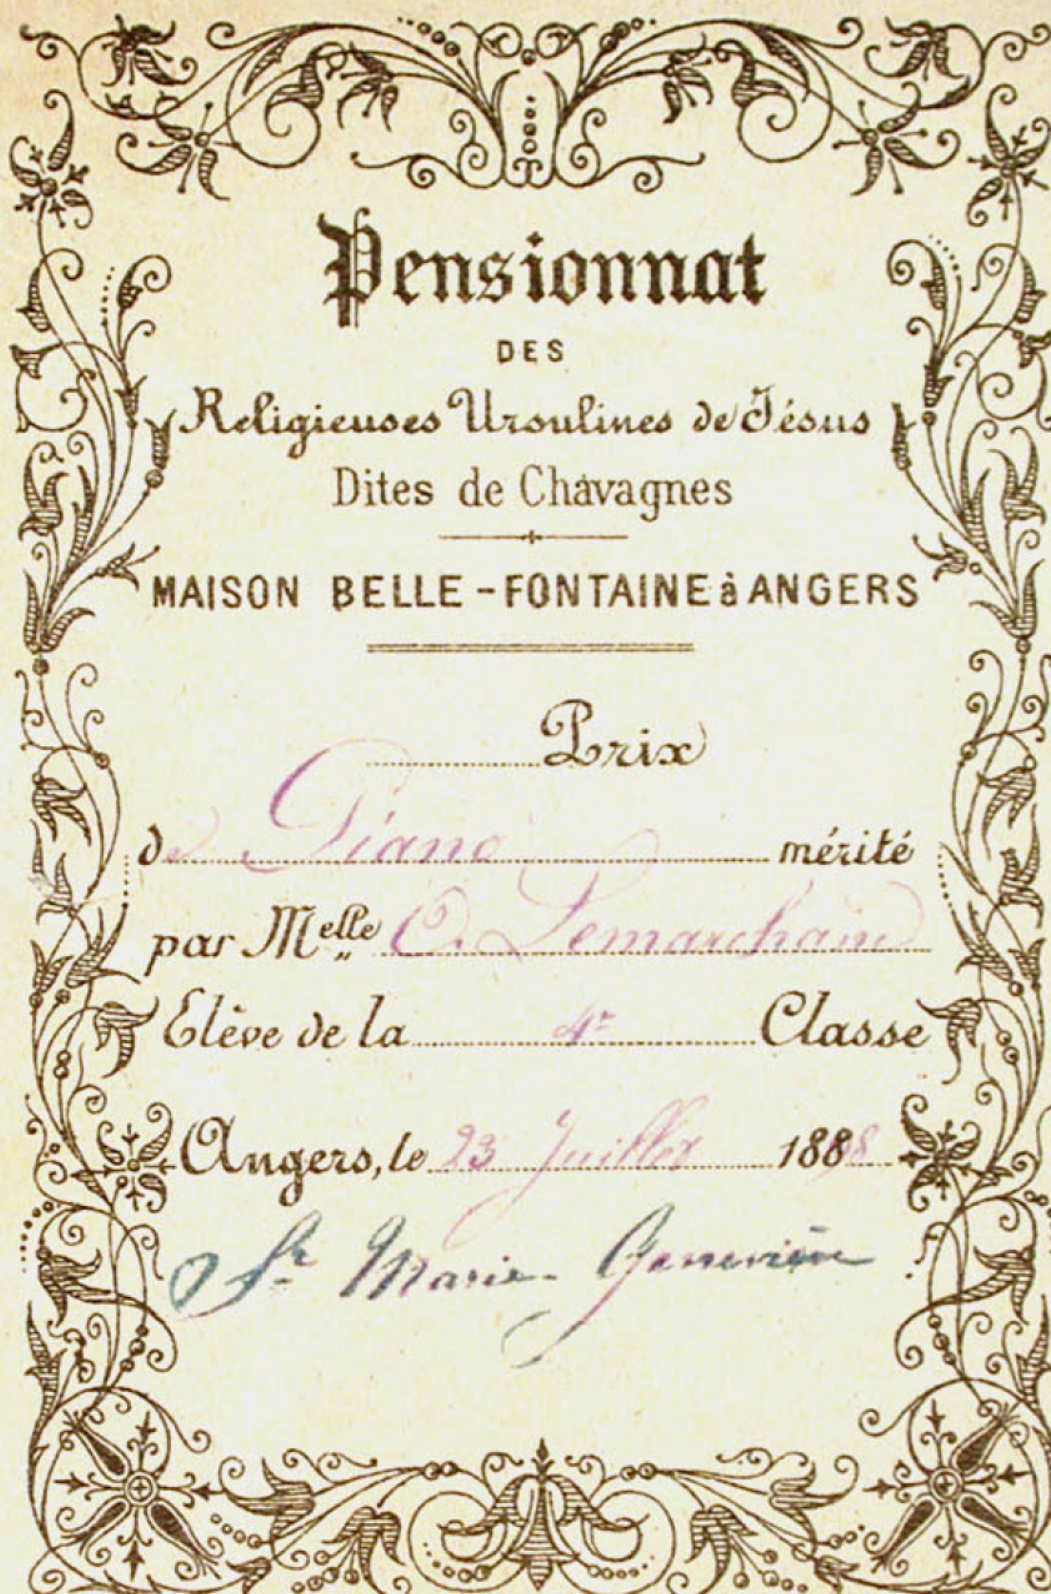 Pensionnat
DES
Religieuses Ursulines de Jésus
Dites de Chavagnes
MAISON BELLE-FONTAINE à ANGERS
Prix
de Piano mérité
par Melle Lemarchand
Elève de la 4e Classe
Angers, le 23 Juillet 1888
Sr Marie-Geneviève